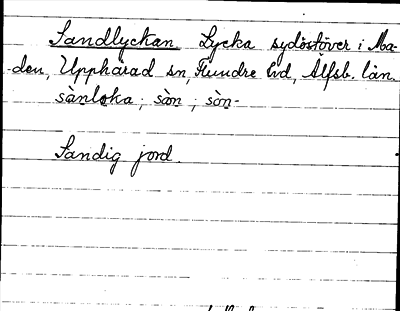 Sandlyckan Lycka sydöstöver i Ma-
-den, Upphärad sn, Flundre hd, Älfsb. län.
sànloka; sàn; sòn-
Sandig jord.